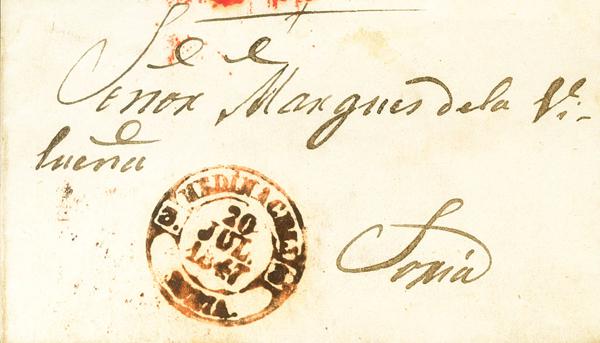 Señor Marques de la Vi-
lueña
MEDINACELI
20
JUL.
1847
SORIA.
Soria